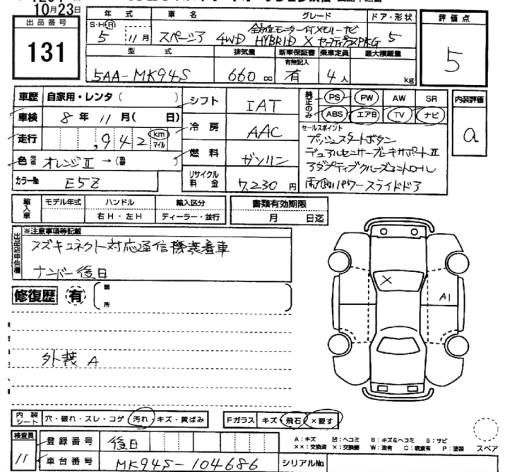 10月23日
出品番号
131
年式 車名 グレード ドア・形状 評価点
S・H・R 5 11月 スペーシア 4WD 全方位モニター付メモリーナビ HYBRID X 5
5
型式 排気量 新車保証書 乗車定員 最大積載量
有無記入
5AA-MK94S 660cc 有 4人 kg
車歴 自家用・レンタ( )
シフト IAT
PS PW AW SR
車検 8年11月( 日)
ABS エアB TV ナビ
内装評価
a
走行 ,942 km マイル
冷房 AAC
セールスポイント
プッシュスタートボタン
色 オレンジⅡ →
燃料 ガソリン
デュアルセンサーブレーキサポートⅡ
アダプティブクルーズコントロール
カラーNo E5Z
リサイクル料金 7,230円
両側パワースライドドア
輸入車 モデル年式 ハンドル 輸入区分 書類有効期限
右H・左H ディーラー・並行 月 日迄
※注意事項等記載
スズキコネクト対応通信機装着車
ナンバー後日
修復歴 有 箇所
X
A1
外装 A
内装シート 穴・破れ・スレ・コゲ 汚れ キズ・黄ばみ Fガラス キズ 飛石 X要す
A:キズ U:ヘコミ B:キズ&ヘコミ S:サビ
XX:交換済 X:交換要 W:波有 C:腐食有 P:塗装
スペア
検査員
11
登録番号 後日
車台番号 MK94S-104686 シリアルNo